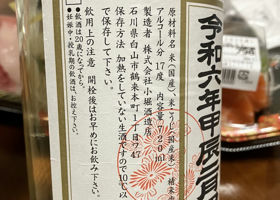 令和六年甲辰二月
原材料名 米(国産)、米こうじ(国産米)
アルコール分 17度 内容量 720ml
製造者 株式会社 小堀酒造店
石川県白山市鶴来本町1丁目ワ47
保存方法 加熱をしていない生酒ですので10℃以下
で保存して下さい。
飲用上の注意 開栓後はお早めにお飲み下さい。
●飲酒は20歳になってから。
●妊娠中・授乳期の飲酒は、お控え下さい。